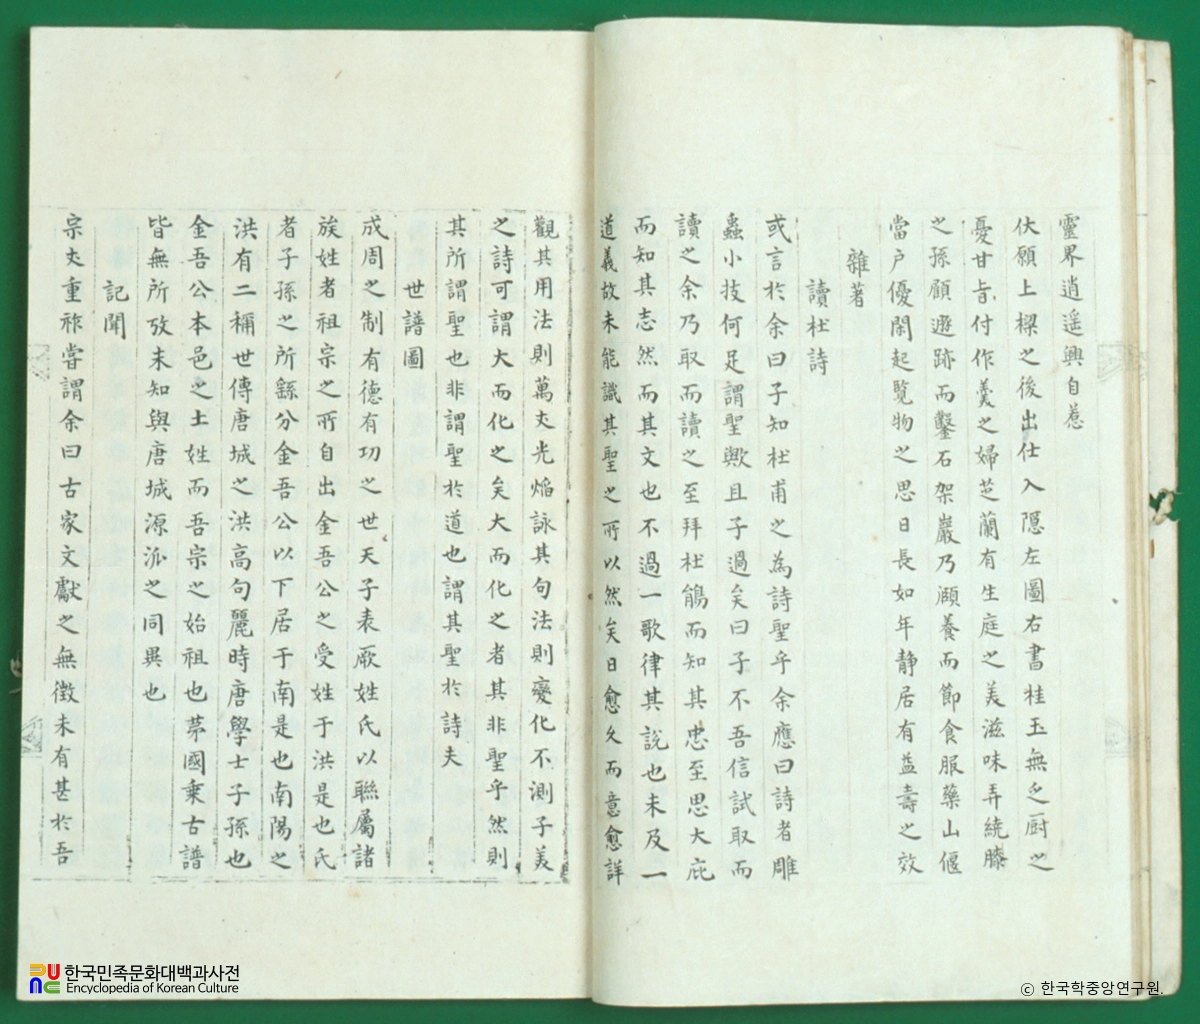 靈界逍遥興自惹
伏願上樑之後出仕入隱左圖右書桂玉無乏厨之
憂甘旨付作羹之婦芝蘭有生庭之美滋味弄繞膝
之孫顧遯跡而鑿石架巖乃頤養而節食服藥山偃
當户優閑起覧物之思日長如年静居有益壽之效
雜著
讀杜詩
或言於余曰子知杜甫之為詩聖乎余應曰詩者雕
蟲小技何足謂聖歟且子過矣曰子不吾信試取而
讀之余乃取而讀之至拜杜鵑而知其忠至思大庇
而知其志然而其文也不過一歌律其説也未及一
道義故未能識其聖之所以然矣日愈久而意愈詳
觀其用法則萬丈光焰詠其句法則變化不測子美
之詩可謂大而化之矣大而化之者其非聖乎然則
其所謂聖也非謂聖於道也謂其聖於詩夫
世譜圖
成周之制有德有功之世天子表厥姓氏以聯屬諸
族姓者祖宗之所自出金吾公之受姓于洪是也氏
者子孫之所繇分金吾公以下居于南是也南陽之
洪有二稱世傳唐城之洪高句麗時唐學士子孫也
金吾公本邑之土姓而吾宗之始祖也苐國乗古譜
皆無所攷未知與唐城源派之同異也
記聞
宗丈重祚嘗謂余曰古家文獻之無徴未有甚於吾
한국민족문화대백과사전
Encyclopedia of Korean Culture
ⓒ 한국학중앙연구원.